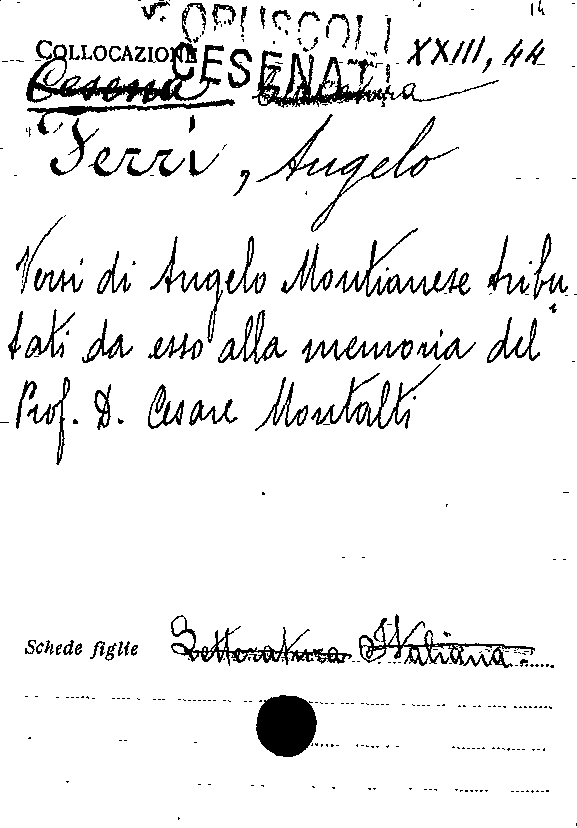 V. OPUSCOLI 14
COLLOCAZIONE CESENATI XXIII, 44
Cesena Letteratura
Ferri, Angelo
Versi di Angelo Montianese tribu
tati da esso alla memoria del
Prof. D. Cesare Montalti
Schede figlie Letteratura Italiana.